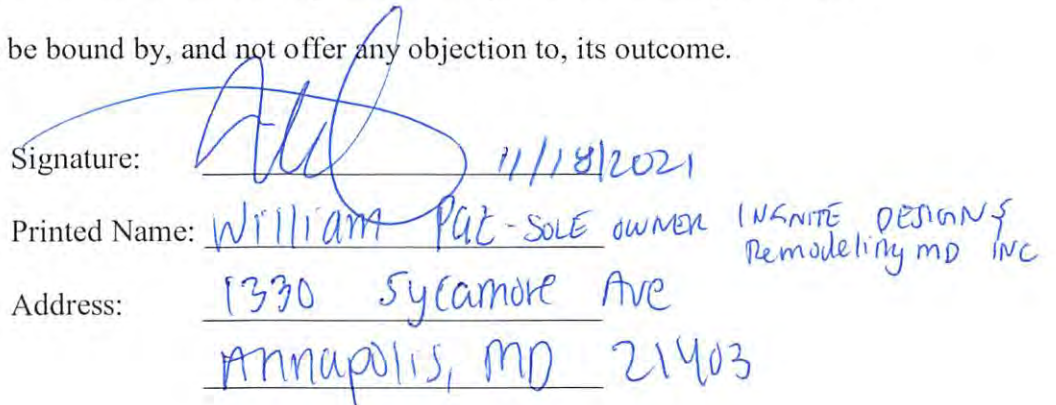 be bound by, and not offer any objection to, its outcome.
Signature: 11/18/2021
Printed Name: William Paz - SOLE OWNER INGNITE DESIGN &
Remodeling MD INC
Address: 1330 Sycamore Ave
Annapolis, MD 21403